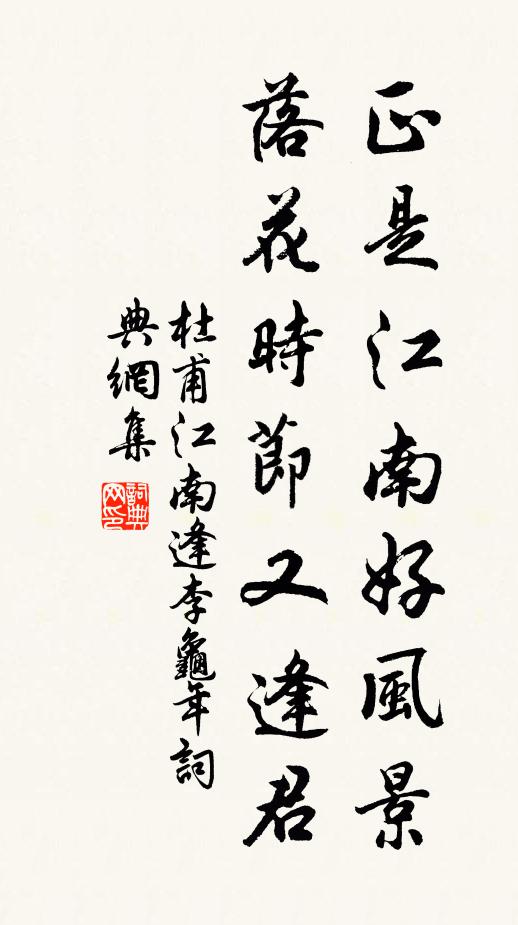 正是江南好風景
落花時節又逢君
杜甫江南逢李龜年詞
典網集
詞典
网印